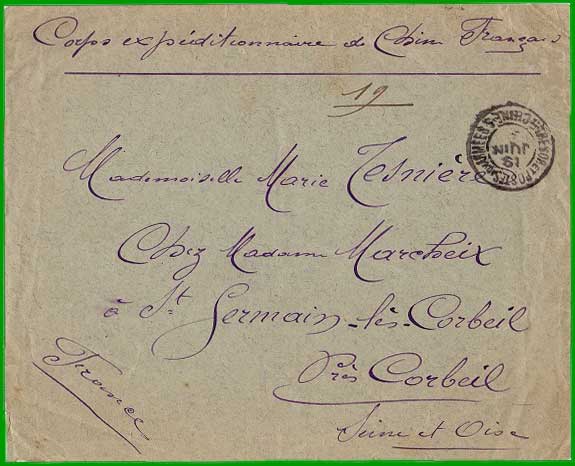 Corps expéditionnaire de Chine Français
19
TRESOR ET POSTES AUX ARMEES CHINE
19
JUIN
Mademoiselle Marie Tesnière
Chez Madame Marcheix
à St Germain-lès-Corbeil
Près Corbeil
Seine et Oise
France